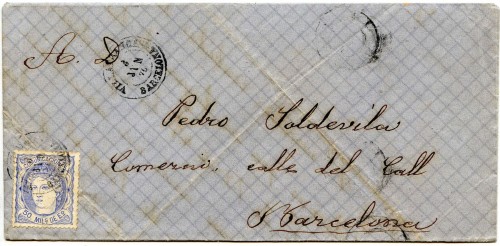 A. D.
JUN
BARCELONA
Pedro Soldevila
Comercio, calle del Call
Barcelona
50 MILS DE E.